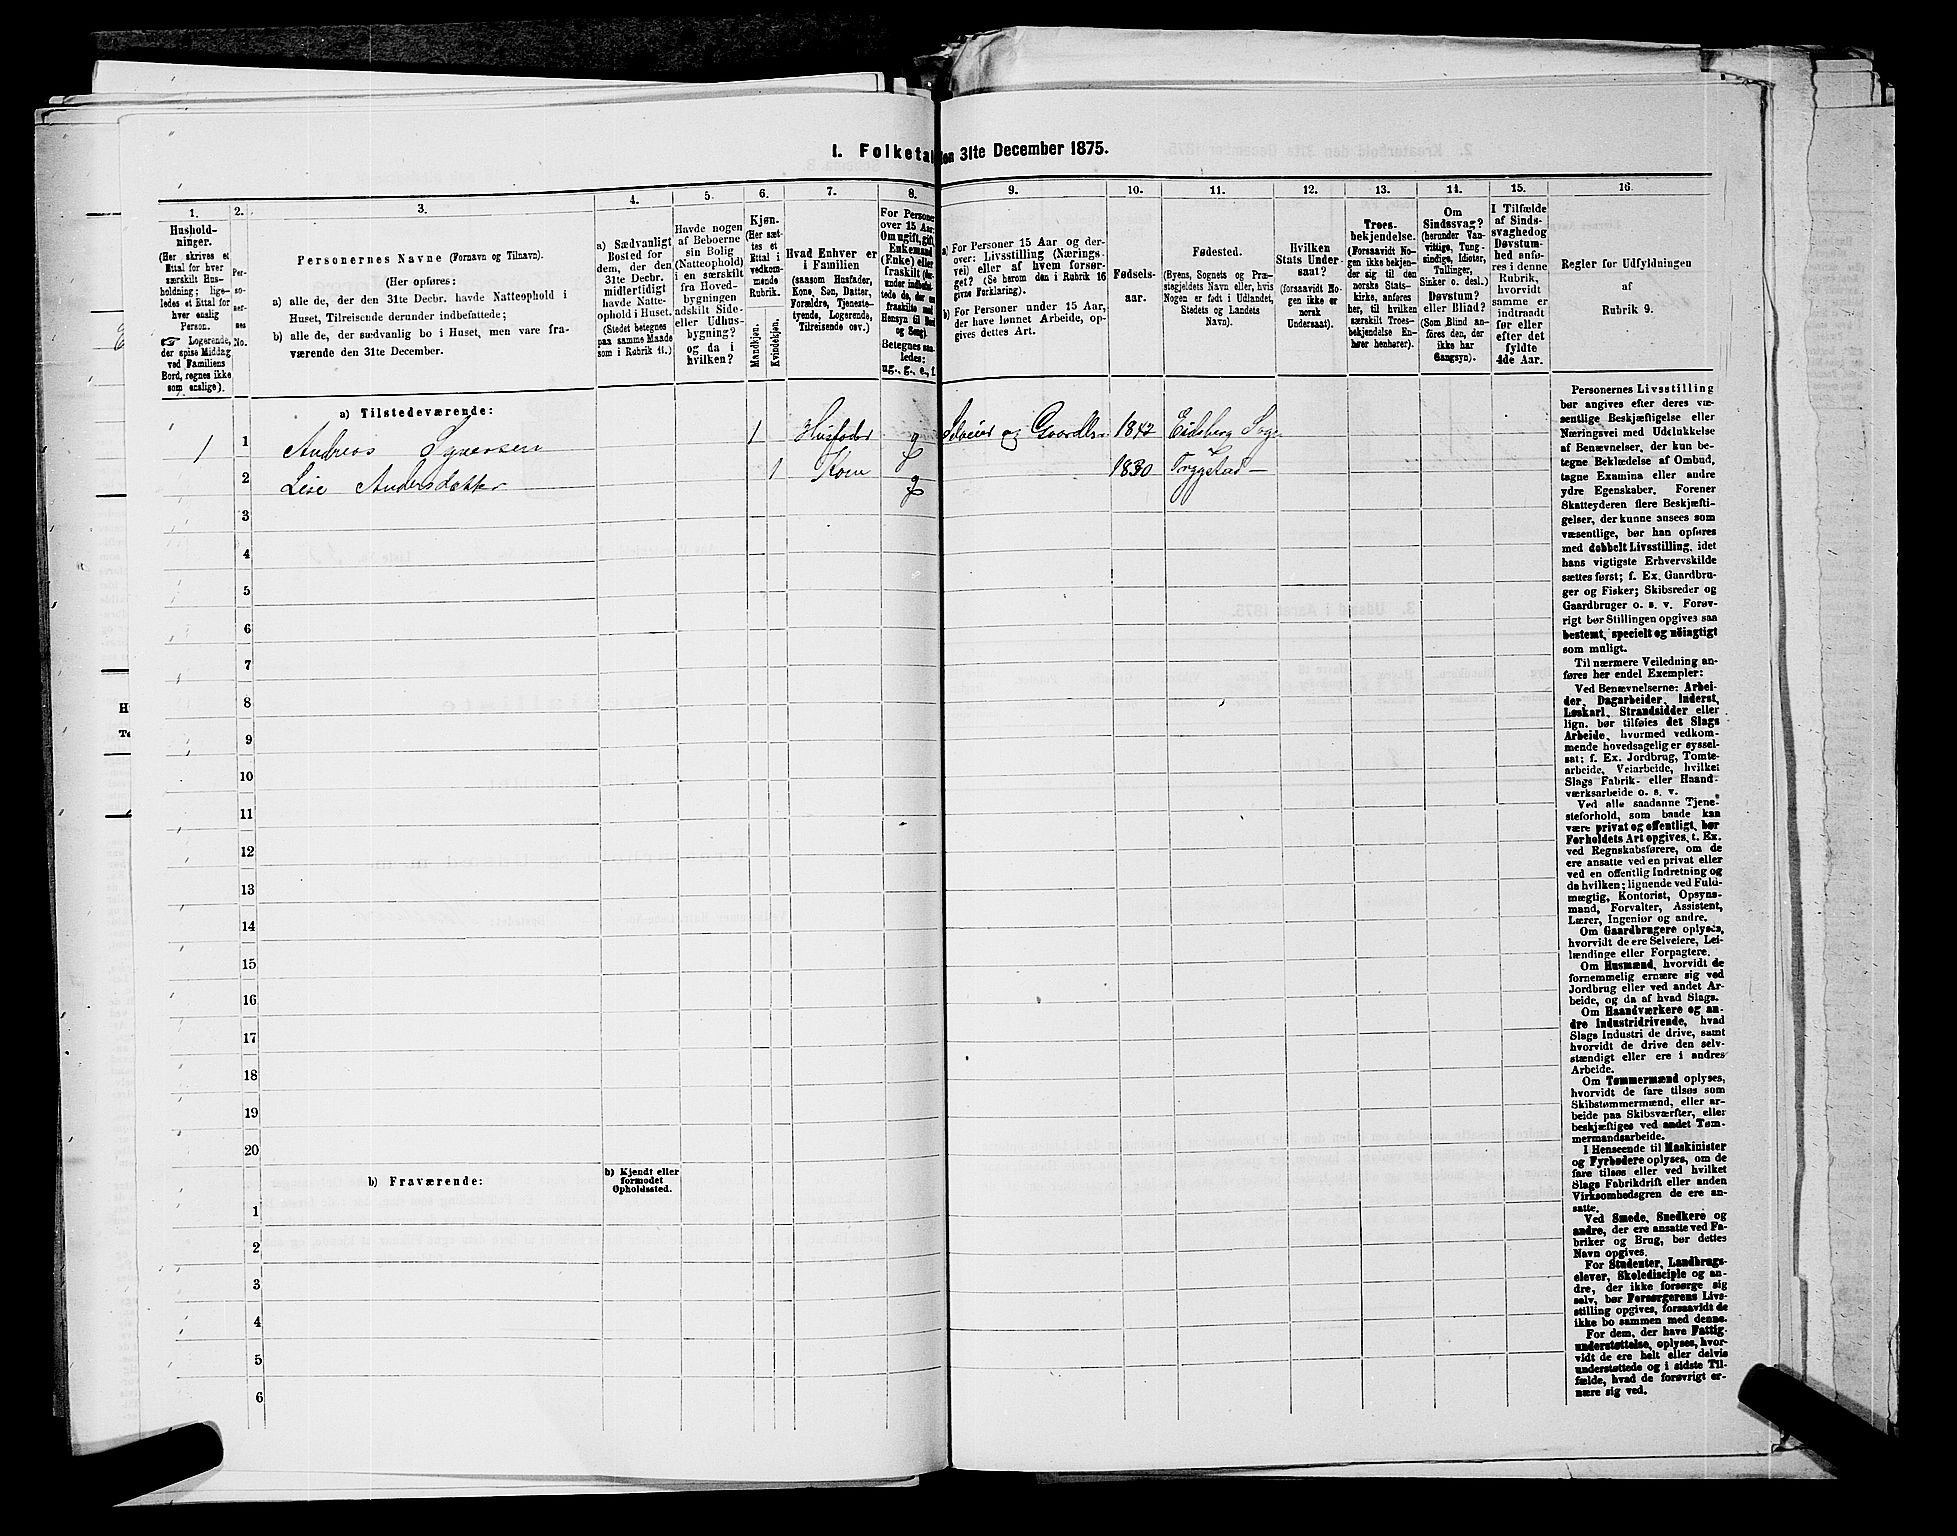 1. Folketal den 31te December 1875.
1.
Hushold-
ninger.
(Her skrives et
Ettal for hver
særskilt Hus-
holdning; lige-
ledes et Ettal for
hver enslig
Person.
Logerende,
der spise Middag
ved Familiens
Bord, regnes ikke
som enslige).
2.
Per-
so-
ner-
nes
No.
3.
Personernes Navne (Fornavn og Tilnavn).
(Her opføres:
a) alle de, der den 31te Decbr. havde Natteophold i
Huset, Tilreisende derunder indbefattede;
b) alle de, der sædvanlig bo i Huset, men vare fra-
værende den 31te December.
4.
a) Sædvanligt
Bosted for
dem, der den
31te Decbr.
midlertidigt
havde Natte-
ophold i Huset.
(Stedet betegnes
paa samme Maade
som i Rubrik 11.)
5.
Havde nogen
af Beboerne
sin Bolig
(Natteophold)
i en særskilt
fra Hoved-
bygningen
adskilt Side-
eller Udhus-
bygning?
og da i
hvilken?
6.
Kjøn.
(Her sæt-
tes et
Ettal i
vedkom-
mende
Rubrik.
Mandkjøn.
Kvindekjøn.
7.
Hvad Enhver er
i Familien
(saasom Husfader,
Kone, Søn, Datter,
Forældre, Tjeneste-
tyende, Logerende,
Tilreisende osv.)
8.
For Personer
over 15 Aar:
Om ugift, gift,
Enkemand
(Enke) eller
fraskilt (der-
under indbefat-
tede de, der ere
fraskilte med
Hensyn til Bord
og Seng).
Betegnes saa-
ledes:
ug., g., e., f.
9.
a) For Personer 15 Aar og der-
over: Livsstilling (Nærings-
vei) eller af hvem forsør-
get? (Se herom den i Rubrik 16
givne Forklaring).
b) For Personer under 15 Aar,
der have lønnet Arbeide, op-
gives dettes Art.
10.
Fødsels-
aar.
11.
Fødested.
(Byens, Sognets og Præ-
stegjeldets Navn eller, hvis
Nogen er født i Udlandet,
Stedets og Landets
Navn).
12.
Hvilken
Stats Under-
saat?
(forsaavidt No-
gen ikke er
norsk
Undersaat).
13.
Troes-
bekjendelse.
(Forsaavidt No-
gen ikke bekjen-
der sig til den
norske Stats-
kirke, anføres
her, til hvilken
særskilt Troes-
bekjendelse En-
hver henhører).
14.
Om
Sindssvag?
(herunder Van-
vittige, Tung-
sindige, Idioter,
Tullinger,
Sinker o. desl.)
Døvstum?
eller Blind?
(Som Blind an-
føres den, der
ikke har
Gangsyn).
15.
I Tilfælde
af Sinds-
svaghed og
Døvstum-
hed anføres
i denne
Rubrik,
hvorvidt
samme er
indtraadt
før eller
efter det
fyldte
4de Aar.
16.
Regler for Udfyldningen
af
Rubrik 9.
a) Tilstedeværende:
1 1 Andreas Syversen 1 Husfader g Selveier og Gaardbr. 1842 Eidsberg Sogn
2 Lise Andersdatter 1 Kone g 1830 Trygstad —
3
4
5
6
7
8
9
10
11
12
13
14
15
16
17
18
19
20
b) Fraværende:
b) Kjendt eller
formodet
Opholdssted.
1
2
3
4
5
6
Personernes Livsstilling
bør angives efter deres væ-
sentlige Beskjæftigelse eller
Næringsvei med Udelukkelse
af Benævnelser, der kun be-
tegne Beklædelse af Ombud,
tagne Examina eller andre
ydre Egenskaber. Forener
Skatteyderen flere Beskjæfti-
gelser, der kunne ansees som
væsentlige, bør han opføres
med dobbelt Livsstilling, idet
hans vigtigste Erhvervskilde
sættes først; f. Ex. Gaardbru-
ger og Fisker; Skibsreder og
Gaardbruger o. s. v. Forøv-
rigt bør Stillingen opgives saa
bestemt, specielt og nøiagtigt
som muligt.
Til nærmere Veiledning an-
føres her endel Exempler:
Ved Benævnelserne: Arbei-
der, Dagarbeider, Inderst,
Løskarl, Strandsidder eller
lign. bør tilføies det Slags
Arbeide, hvormed vedkom-
mende hovedsagelig er syssel-
sat; f. Ex. Jordbrug, Tomte-
arbeide, Veiarbeide, hvilket
Slags Fabrik- eller Haand-
værksarbeide o. s. v.
Ved alle saadanne Tjene-
steforhold, som baade kan
være privat og offentligt, bør
Forholdets Art opgives, t. Ex.
ved Regnskabsførere, om de
ere ansatte ved en privat eller
ved en offentlig Indretning og
da hvilken; lignende ved Fuld-
mægtig, Kontorist, Opsyns-
mand, Forvalter, Assistent,
Lærer, Ingeniør og andre.
Om Gaardbrugere oplyses,
hvorvidt de ere Selveiere, Lei-
lændinge eller Forpagtere.
Om Husmænd, hvorvidt de
fornemmelig ernære sig ved
Jordbrug eller ved andet Ar-
beide, og da af hvad Slags.
Om Haandværkere og an-
dre Industridrivende, hvad
Slags Industri de drive, samt
hvorvidt de drive den selv-
stændigt eller ere i andres
Arbeide.
Om Tømmermænd oplyses,
hvorvidt de fare tilsøs som
Skibstømmermænd, eller ar-
beide paa Skibsværfter, eller
beskjæftiges ved andet Tøm-
mermandsarbeide.
I Henseende til Maskinister
og Fyrbødere oplyses, om de
fare tilsøs eller ved hvilket
Slags Fabrikdrift eller anden
Virksomhedsgren de ere an-
satte.
Ved Smede, Snedkere og
andre, der ere ansatte ved Fa-
briker og Brug, bør dettes
Navn opgives.
For Studenter, Landbrugs-
elever, Skoledisciple og an-
dre, der ikke forsørge sig
selv, bør Forsørgerens Livs-
stilling opgives, forsaavidt de
ikke bo sammen med denne.
For dem, der have Fattig-
understøttelse, oplyses, hvor-
vidt de ere helt eller delvis
understøttede og i sidste Til-
fælde, hvad de forøvrigt er-
nære sig ved.